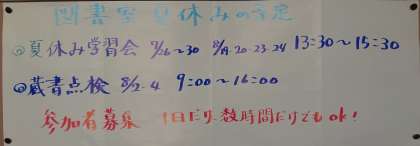 図書室 夏休みの予定
◎夏休み学習会 7/26~30 8/19.20.23.24 13:30~15:30
◎蔵書点検 8/2.4 9:00~16:00
参加者募集 1日だけ、数時間だけでもok!